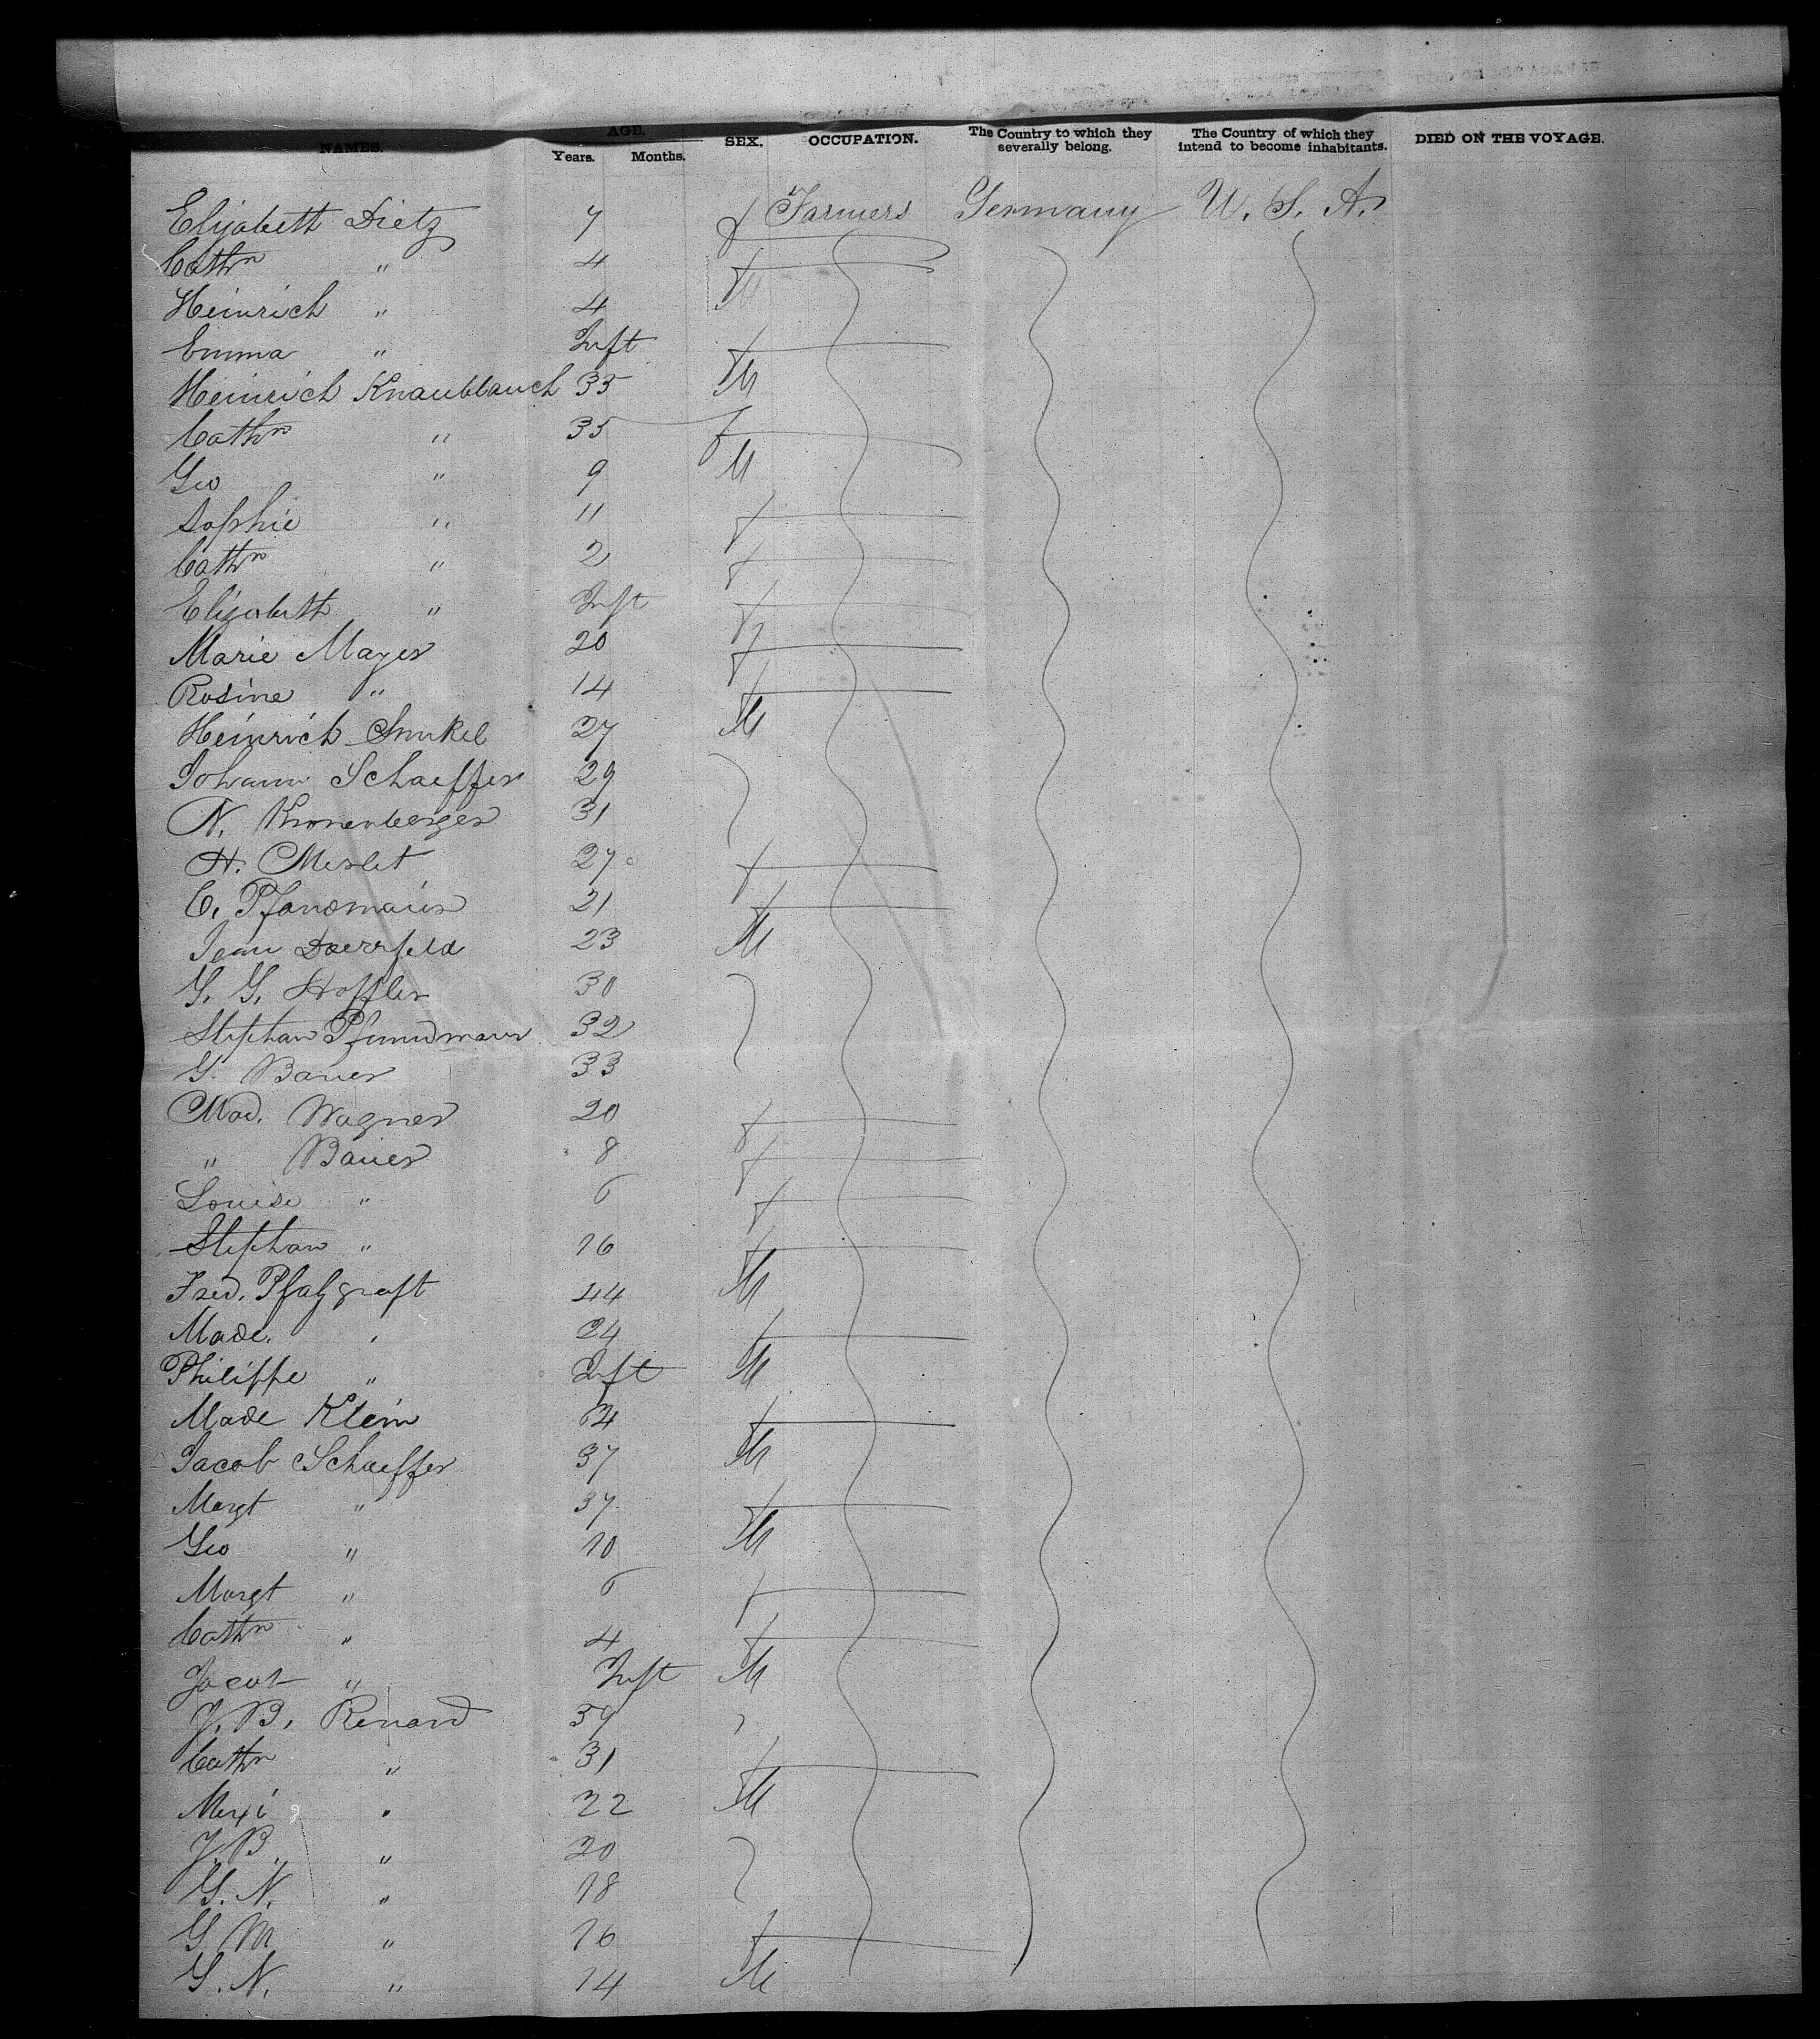 NAMES. AGE. Years. Months. SEX. OCCUPATION. The Country to which they severally belong. The Country of which they intend to become inhabitants. DIED ON THE VOYAGE.
Elizabeth Dietz 7 f Farmers Germany U. S. A.
Cathn " 4 f
Heinrich " 4 M
Emma " Inft f
Heinrich Knaublauch 35 M
Cathn " 35 f
Geo " 9 M
Sophie " 11 f
Cathn " 2 f
Elizabeth " Inft f
Marie Mayer 20 f
Rosine " 14 f
Heinrich 27 M
Johann Schaeffer 29
N. Kronenberger 31
H. Merlet 27 f
C. Pfandmaier 21 f
Jean Doerrfeld 23 M
G. G. Hoffler 30
Stephan Pfundmaier 32
G. Bauer 33
Mad. Wagner 20 f
" Bauer 8 f
Louise " 6 f
Stephan " 16 f
Fred. Pfalzgraft 44 M
Made. " 24 f
Philippe " Inft M
Made Klein 64 f
Jacob Schaeffer 37 M
Margt " 37 f
Geo " 10 M
Margt " 6 f
Cathn " 4 f
Jacob " Inft M
J. B. Renard 39 "
Cathn " 31 f
" 22 M
J. B. " 20
G. N. " 18
G. M " 16 f
G. N. " 14 M